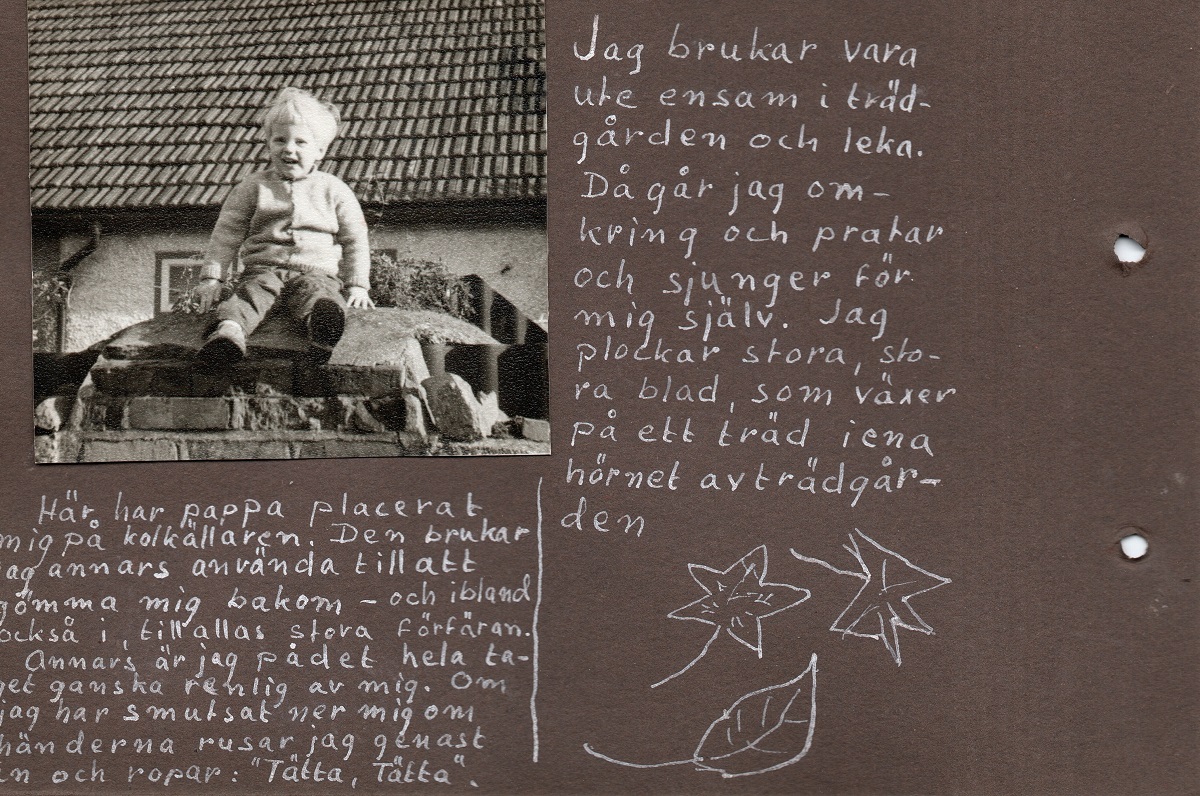 Jag brukar vara
ute ensam i träd-
gården och leka.
Då går jag om-
kring och pratar
och sjunger för
mig själv. Jag
plockar stora, sto-
ra blad, som växer
på ett träd i ena
hörnet av trädgår-
den
Här har pappa placerat
mig på kolkällaren. Den brukar
jag annars använda till att
gömma mig bakom - och ibland
också i, till allas stora förfäran.
Annars är jag på det hela ta-
get ganska renlig av mig. Om
jag har smutsat ner mig om
händerna rusar jag genast
in och ropar: "Tätta, Tätta".